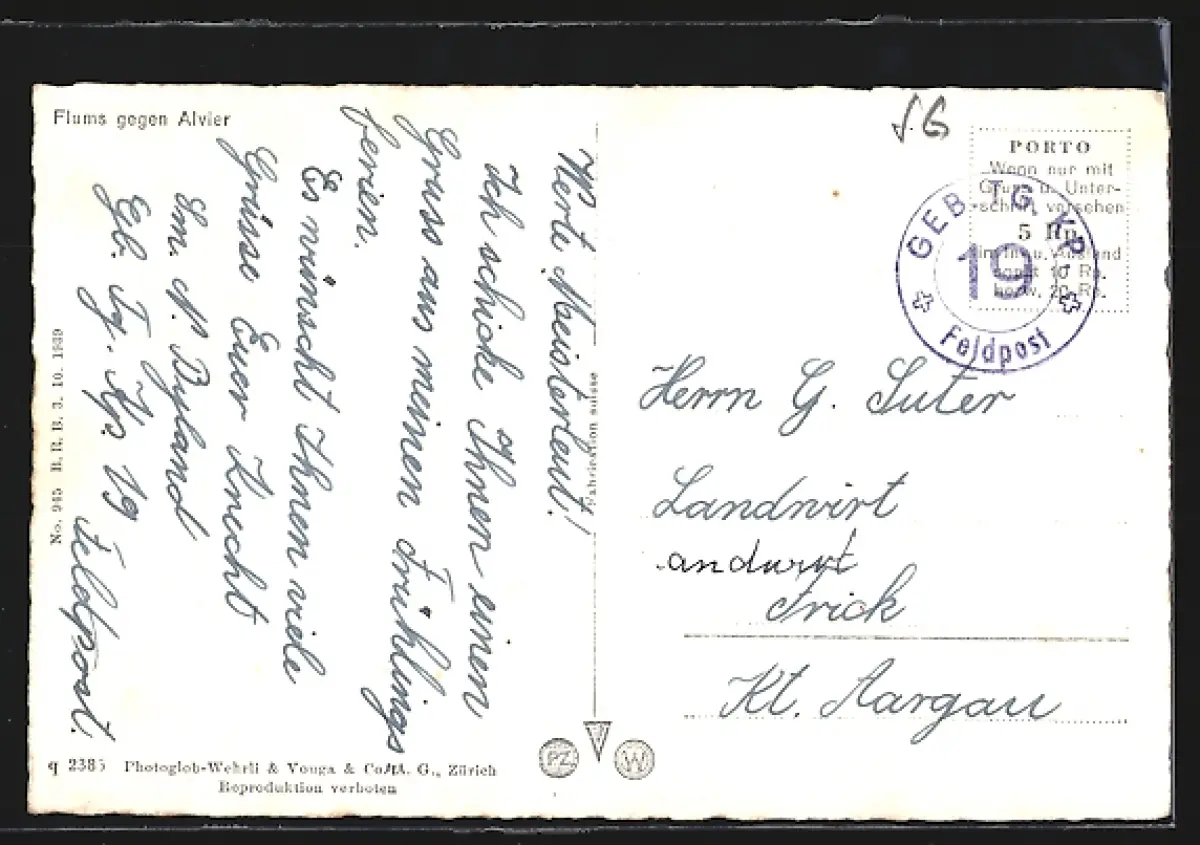 Flums gegen Alvier
Werte Meisterleut!
Ich schicke Ihnen einen
Gruss aus meinen Frühlings
ferien.
Es wünscht Ihnen viele
Grüsse Euer Knecht
Em. N. Byland
Gb. Tg. Kp. 19 Feldpost.
No. 945 B. R. B. 3. 10. 1939
q 2385 Photoglob-Wehrli & Vouga & Co. A. G., Zürich
Reproduktion verboten
Fabrication suisse
PZ
W
S.G
PORTO
Wenn nur mit
Gruss u. Unter-
schrift versehen
5 Rp.
im In- u. Ausland
sonst 10 Rp.
bezw. 20 Rp.
GEB. TG. KP.
19
Feldpost
Herrn G. Suter
Landwirt
andwirt
Frick
Kt. Aargau